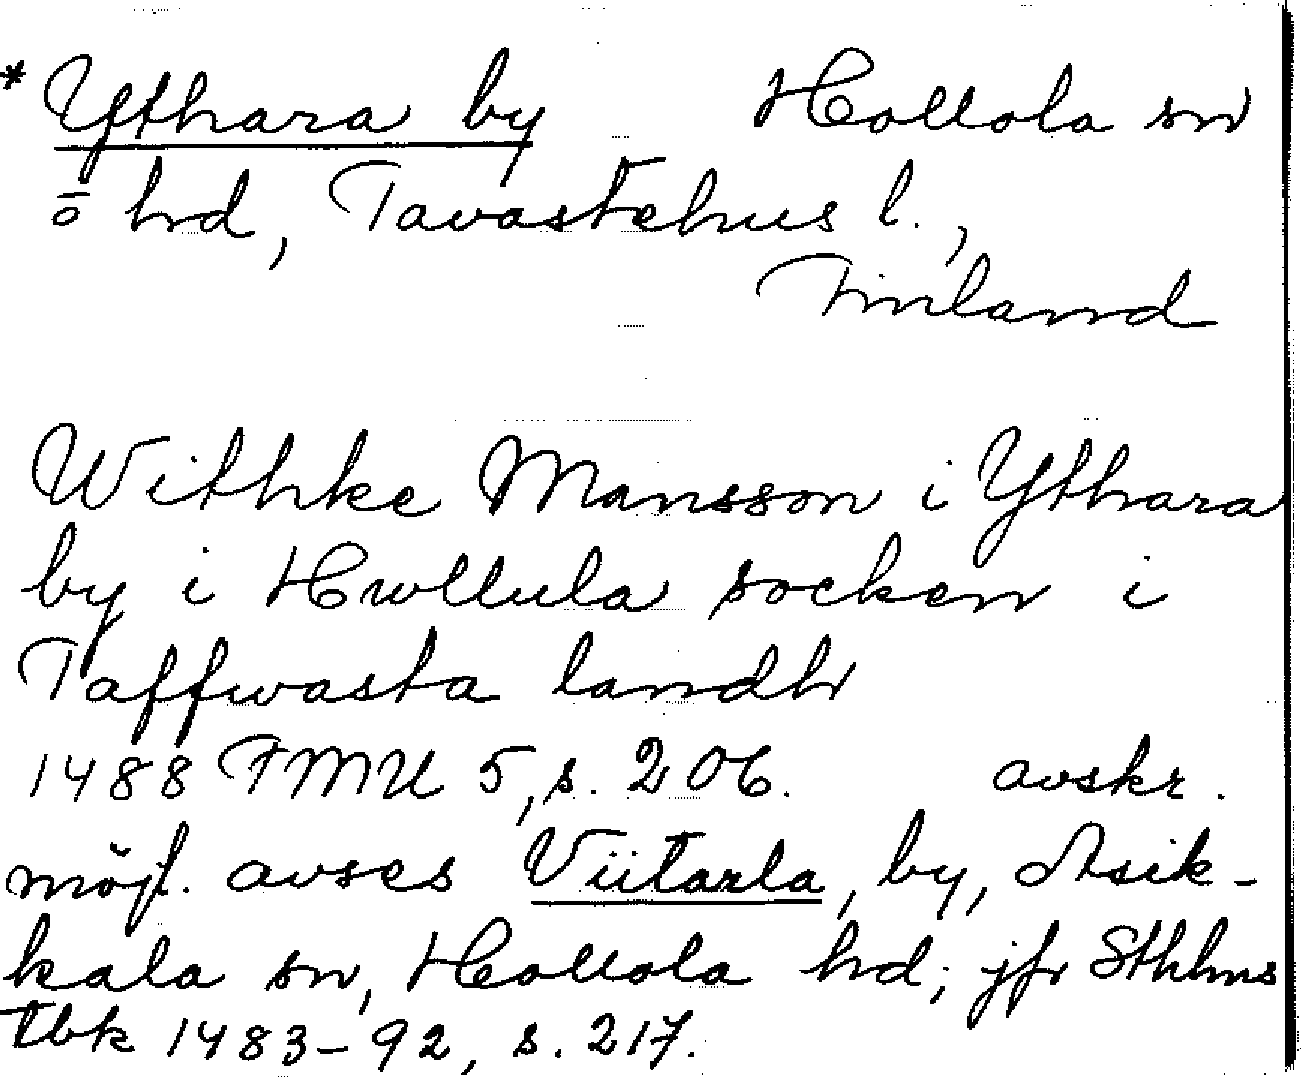 * Ythara by Hollola sn
o hd, Tavastehus l.,
Finland
Withke Mansson i Ythara
by i Hwllula socken i
Taffwasta landh
1488 FMU 5, s. 206. avskr.
möjl. avses Viitaila, by, Asik-
kala sn, Hollola hd; jfr Sthlms
tbk 1483-92, s. 217.